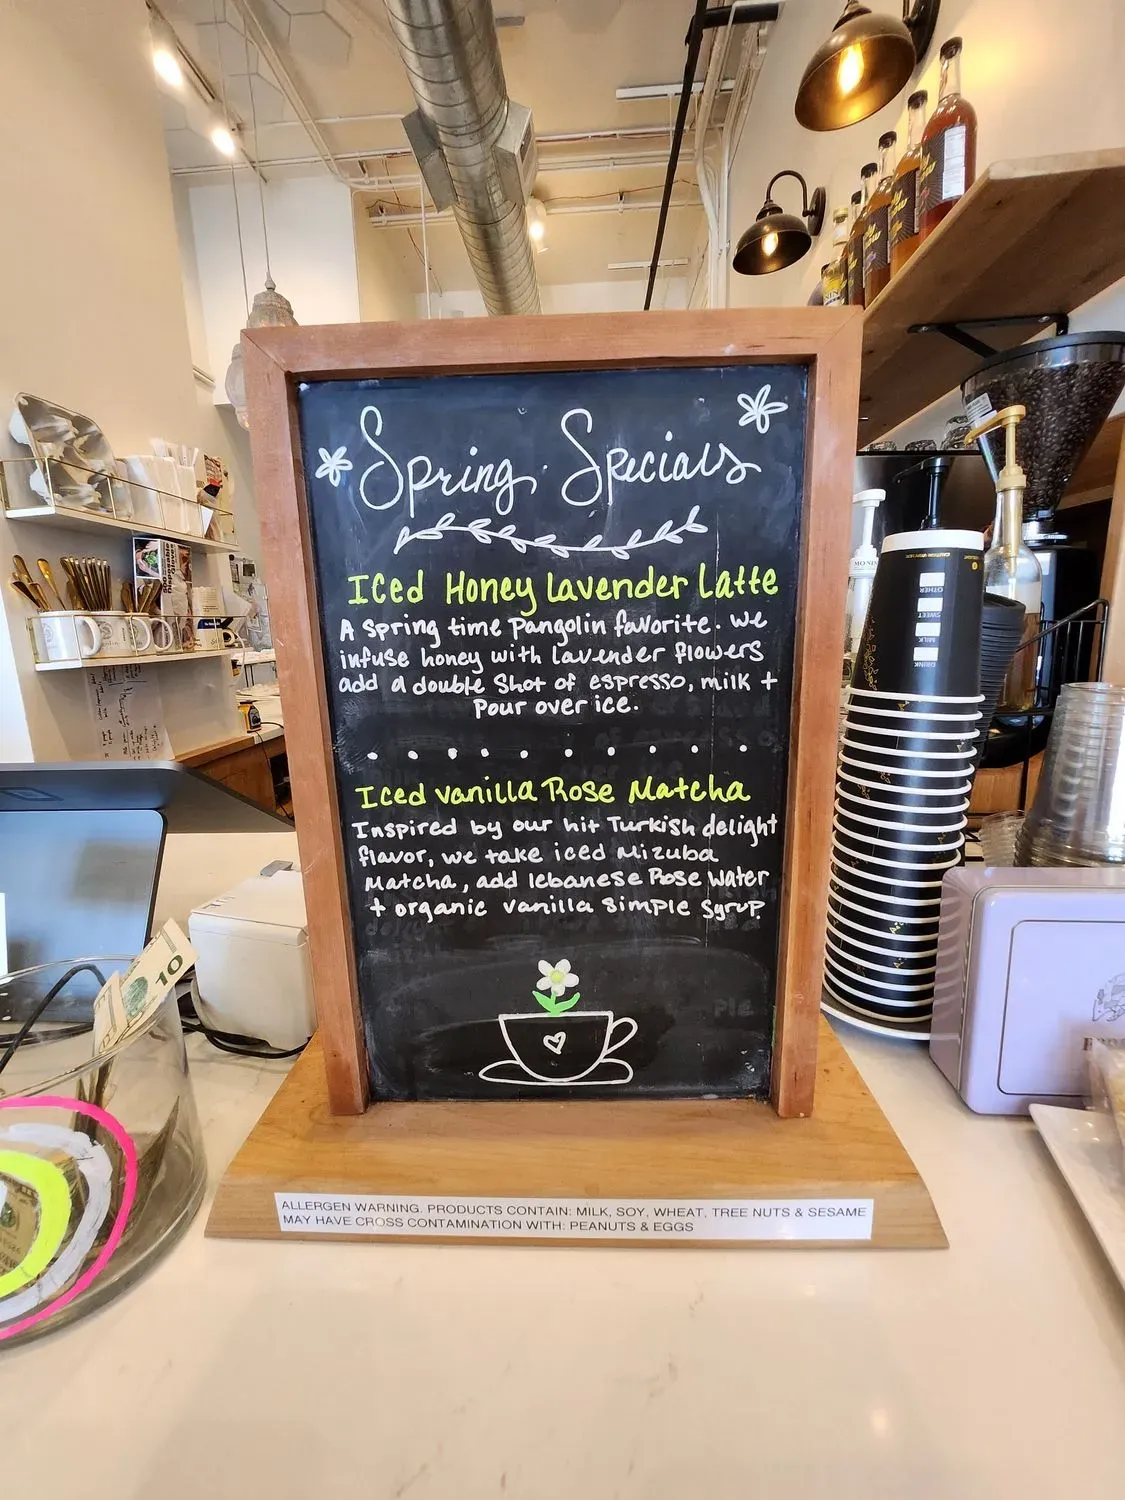 Spring Specials
Iced Honey Lavender Latte
A spring time Pangolin favorite. We
infuse honey with lavender flowers
add a double shot of espresso, milk +
pour over ice.
Iced Vanilla Rose Matcha
Inspired by our hit Turkish delight
flavor, we take iced Mizuba
Matcha, add lebanese Rose water
+ organic vanilla simple syrup.
ALLERGEN WARNING. PRODUCTS CONTAIN: MILK, SOY, WHEAT, TREE NUTS & SESAME
MAY HAVE CROSS CONTAMINATION WITH: PEANUTS & EGGS
10
OTHER
SWEET
MILK
DRINK
MONIN